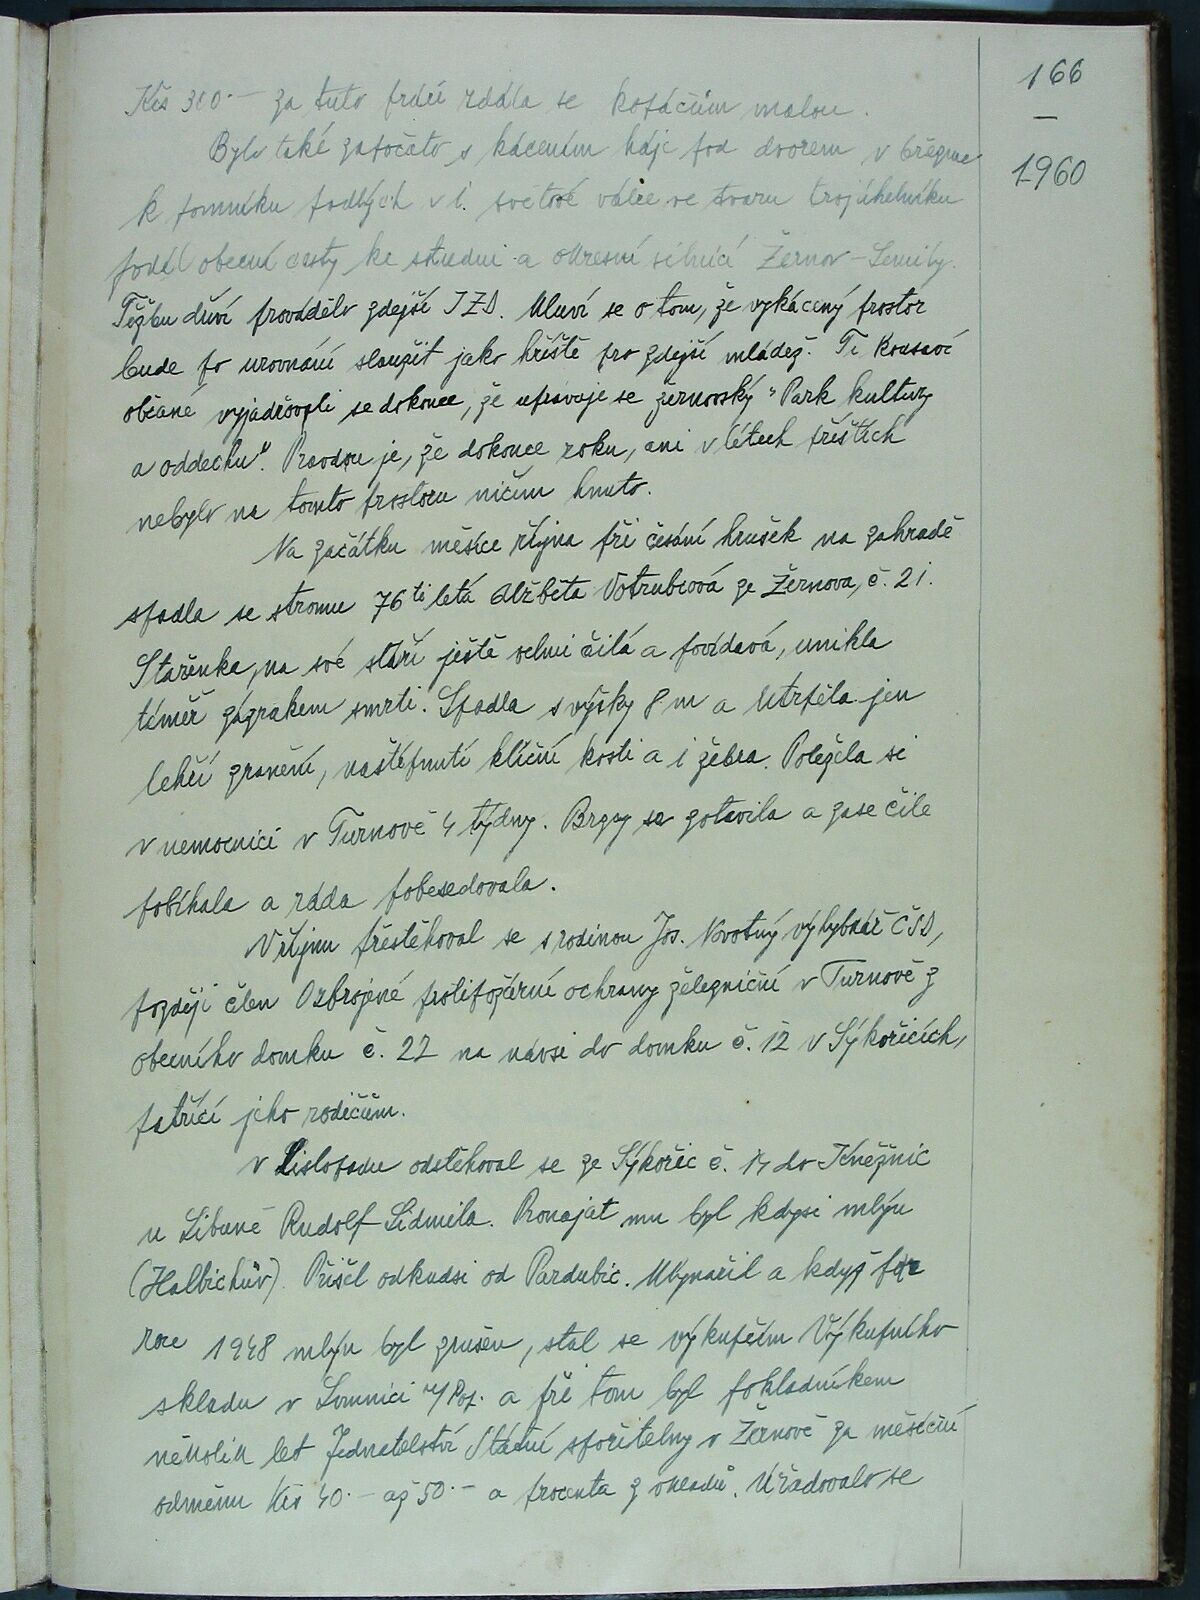 166
—
1960
Kčs 300.— za tuto práci zdála se kopáčům malou.
Bylo také započato s kácením háje pod dvorem v březnu
k pomníku padlých v I. světové válce ve tvaru trojúhelníku
podél obecní cesty ke studni a okresní silnicí Žernov – Semily.
Těžbu dříví provádělo zdejší JZD. Mluví se o tom, že vykácený prostor
bude po urovnání sloužit jako hřiště pro zdejší mládež. Ti kousaví
občané vyjadřovali se dokonce, že upravuje se žernovský "Park kultury
a oddechu". Pravdou je, že dokonce roku, ani v létech příštích
nebylo na tomto prostoru ničím hnuto.
Na začátku měsíce října při česání hrušek na zahradě
spadla se stromu 76 ti letá Alžběta Votrubcová ze Žernova, č. 21.
Stařenka, na své stáří ještě velmi čilá a povídavá, unikla
téměř zázrakem smrti. Spadla s výšky 8 m a utrpěla jen
lehčí zranění, naštípnutí klíční kosti a 1 žebra. Poležela si
v nemocnici v Turnově 4 týdny. Brzy se zotavila a zase čile
pobíhala a ráda pobesedovala.
V říjnu přestěhoval se s rodinou Jos. Novotný výhybkář ČSD,
později člen Ozbrojené protipožární ochrany železniční v Turnově z
obecního domku č. 22 na návsi do domku č. 12 v Sýkořicích,
patřící jeho rodičům.
V Listopadu odstěhoval se ze Sýkořic č. 14 do Kněžnic
u Libuně Rudolf Lidmila. Pronajat mu byl kdysi mlýn
(Halbichův). Přišel odkudsi od Pardubic. Mlynařil a když
roce 1948 mlýn byl zrušen, stal se výkupčím Výkupního
skladu v Lomnici n/Pop. a při tom byl pokladníkem
několik let Jednatelství Státní spořitelny v Žernově za měsíční
odměnu Kčs 40.— až 50.— a procenta z vkladů. Úřadovalo se